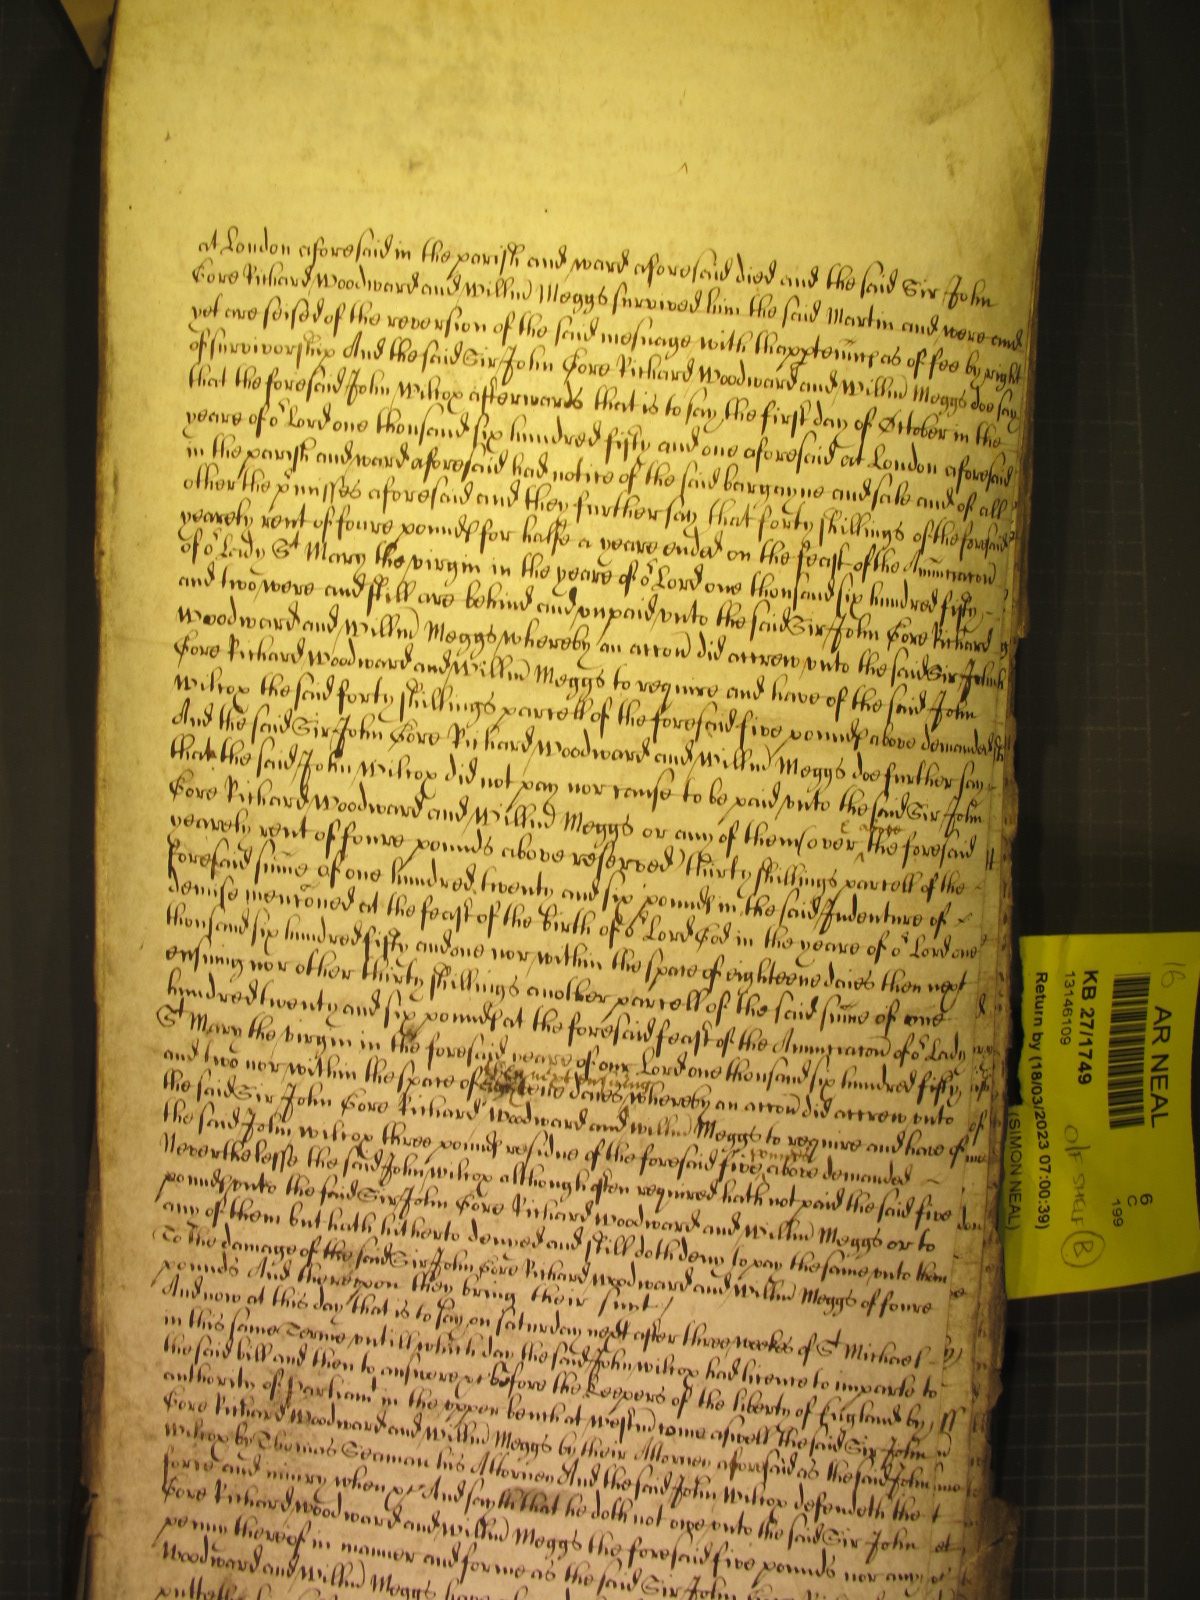 at London aforesaid in the parish and ward aforesaid died and the said Sir John
Gore Richard Woodward and Willm Meggs survived him the said Martin and were and
yet are seised of the reversion of the said mesuage with thapptennces as of fee by right
of survivorship And the said Sir John Gore Richard Woodward and Willm Meggs doe say
that the foresaid John Wilcox afterwards that is to say the first day of October in the
yeare of or Lord one thousand six hundred fifty and one aforesaid at London aforesaid
in the parish and ward aforesaid had notice of the said bargayne and sale and of all
other the pmisses aforesaid and they further say that forty shillings of the foresaid
yearely rent of foure pounds for halfe a yeare ended on the feast of the Annunciacon
of or Lady St Mary the virgin in the yeare of or Lord one thousand six hundred fifty
and two were and still are behind and unpaid unto the said Sir John Gore Richard
Woodward and Willm Meggs whereby an accon did accrew unto the said Sir John
Gore Richard Woodward and Willm Meggs to require and have of the said John
Wilcox the said forty shillings parcell of the foresaid five pounds above demanded
And the said Sir John Gore Richard Woodward and Willm Meggs doe further say
that the said John Wilcox did not pay nor cause to be paid unto the said Sir John
Gore Richard Woodward and Willm Meggs or any of them (over & above the foresaid
yearely rent of foure pounds above reserved) thirty shillings parcell of the
foresaid sume of one hundred twenty and six pounds in the said Indenture of
demise mencioned at the feast of the Birth of or Lord God in the yeare of or Lord one
thousand six hundred fifty and one nor within the space of eighteene daies then next
ensuing nor other thirty shillings another parcell of the said sume of one
hundred twenty and six pounds at the foresaid feast of the Annunciacon of or Lady
St Mary the virgin in the foresaid yeare of our Lord one thousand six hundred fifty
and two nor within the space of eighteene daies then next ensuing whereby an accon did accrew unto
the said Sir John Gore Richard Woodward and Willm Meggs to require and have of
the said John Wilcox three pounds residue of the foresaid five pounds above demanded
Neverthelesse the said John Wilcox although often required hath not paid the said five
pounds unto the said Sir John Gore Richard Woodward and Willm Meggs or to
any of them but hath hitherto denyed and still doth deny to pay the same unto them
To the damage of the said Sir John Gore Richard Woodward and Willm Meggs of foure
pounds And thereupon they bring their suut /
And now at this day that is to say on Saturday next after three weekes of St Michael
in this same Terme untill which day the said John Wilcox had licence to imparle to
the said bill and then to answere &c Before the Keepers of the liberty of England by
authority of Parliamt in the upper bench at Westm come aswell the said Sir John
Gore Richard Woodward and Willm Meggs by their Attorney aforesaid as the said John
Wilcox by Thomas Seaman his Attorney And the said John Wilcox defendeth the
force and iniury when &c And sayth that he doth not owe unto the said Sir John
Gore Richard Woodward and Willm Meggs the foresaid five pounds nor any
penny thereof in manner and forme as the said Sir John Gore Richard
Woodward and Willm Meggs have
putteth
16 AR NEAL
6
C
199
KB 27/1749
13146109
O/F SHELF B
Return by (18/03/2023 07:00:39)
(SIMON NEAL)